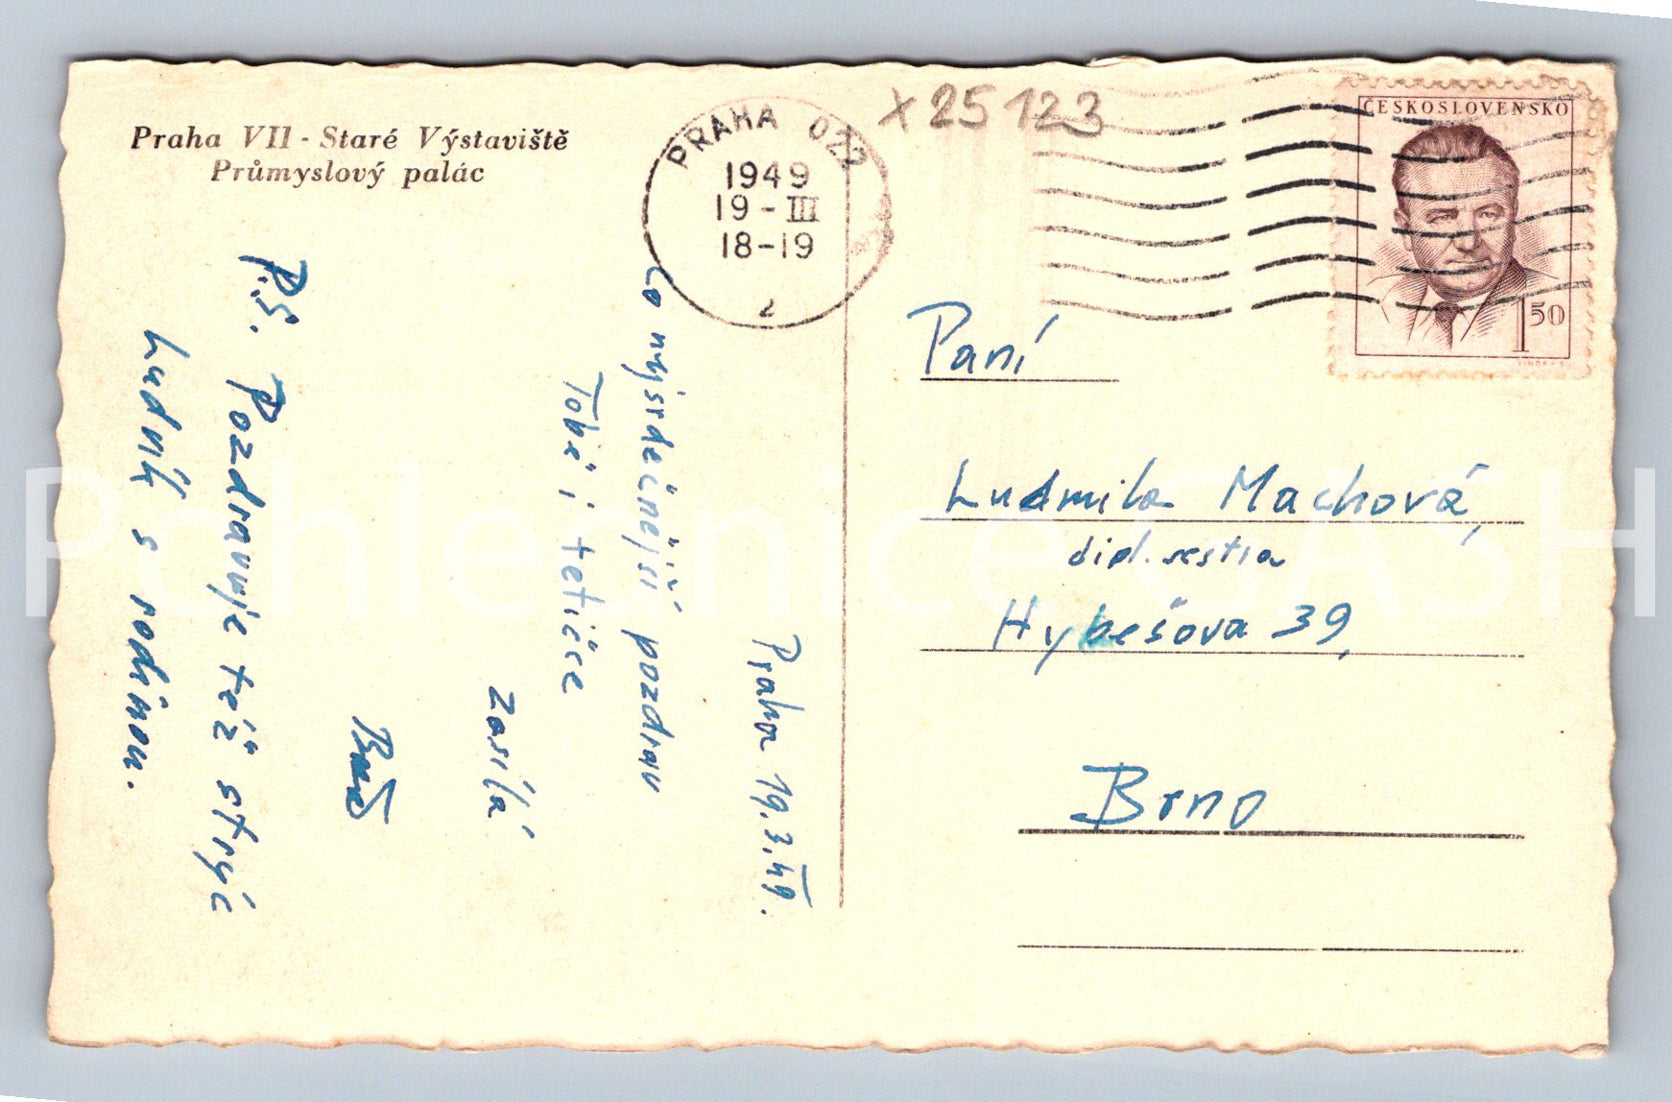 Praha VII - Staré Výstaviště
Průmyslový palác
PRAHA 022
1949
19-III
18-19
2
x 25 123
ČESKOSLOVENSKO
1 50
Praha 19.3.49.
Co nejsrdečnější pozdrav
Tobě i tetičce
zasílá
P.S. Pozdravuje též strýc
Ludvík s rodinou.
Paní
Ludmila Machová,
dipl. sestra
Hybešova 39,
Brno
Pohlednice GASH